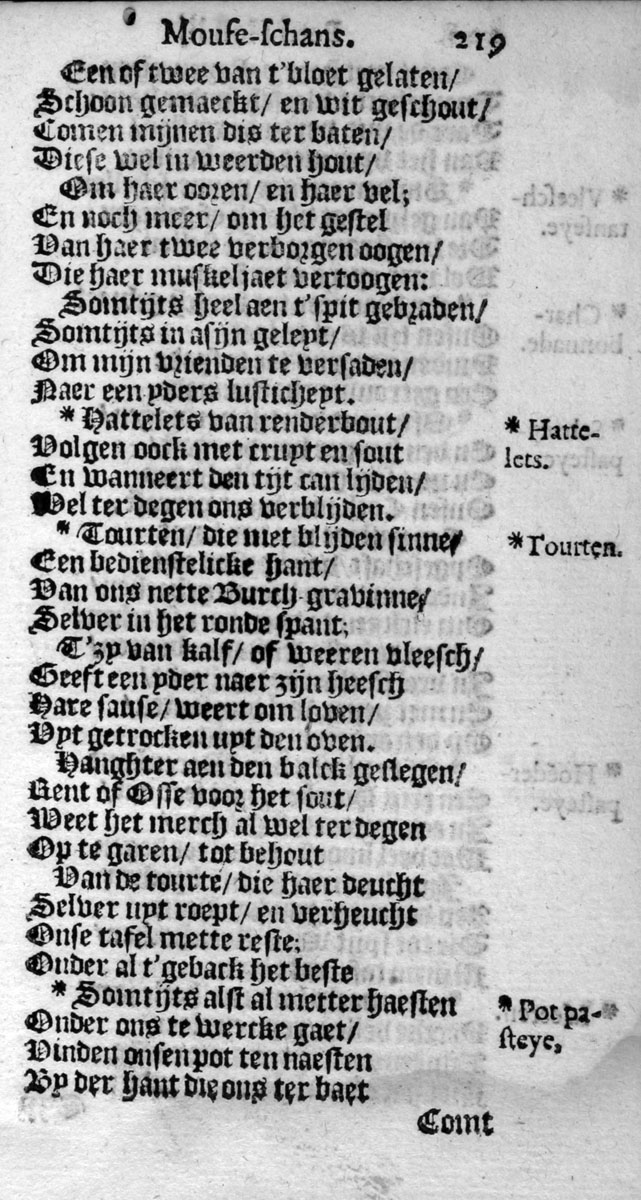 Mouse-schans. 219
Een of twee van t'bloet gelaten/
Schoon gemaeckt/ en wit geschout/
Comen mijnen dis ter baten/
Diese wel in weerden hout/
Om haer ooren/ en haer vel;
En noch meer/ om het gestel
Van haer twee verborgen oogen/
Die haer muskeljaet vertoogen:
Somtijts heel aen t'spit gebraden/
Somtijts in asijn geleyt/
Om mijn vrienden te versaden/
Naer een yders lusticheyt.
* Hattelets van renderbout/
Volgen oock met cruyt en sout
En wanneert den tijt can lijden/
Wel ter degen ons verblijden.
* Tourten/ die met blijden sinne/
Een bedienstelicke hant/
Van ons nette Burch-gravinne/
Selver in het ronde spant;
T'zy van kalf/ of weeren vleesch/
Geeft een yder naer zijn heesch
Hare sause/ weert om loven/
Uyt getrocken uyt den oven.
Hanghter aen den balck geslegen/
Rent of Osse voor het sout/
Weet het merch al wel ter degen
Op te garen/ tot behout
Van de tourte/ die haer deucht
Selver uyt roept/ en verheucht
Onse tafel mette reste;
Onder al t'geback het beste
* Somtijts alst al metter haesten
Onder ons te wercke gaet/
Vinden onsen pot ten naesten
By der hant die ons ter baet
Comt
* Hatte-
lets.
* Tourten.
* Pot pa-
steye,